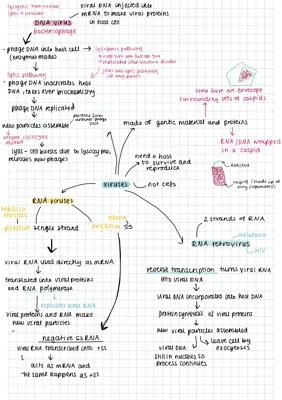 lysogenic = 
lytic = virulent
DNA virus
bacteriophage
viral DNA injected into
mRNA to make viral proteins
in host cell
- phage DNA into host cell
(enzymes made)
lysogenic pathway
lytic pathway
- phage DNA inactivates host
DNA, takes over biochemistry
phage DNA replicated
new particles assemble
lysis - cell bursts due to lysozyme,
releases new phages
made of genetic material and proteins
some have an envelope
surrounding sets of capsids
RNA/DNA wrapped
in a capsid
RNA/DNA
capsid (made up of
need a host
to survive and
reproduce
viruses
not cells
RNA viruses
tobacco
mosaic
positive
single strand
ebola
negative
ss
2 strands of RNA
RNA retrovirus
HIV
viral RNA used directly as mRNA
translated into viral proteins
and RNA polymerase
replicates viral RNA
viral proteins and RNA make
new viral particles
negative ssRNA
viral RNA transcribed into +ss
acts as mRNA and
the same happens as +ss
reverse transcription turns viral RNA
into viral DNA
viral DNA incorporated into host DNA
protein synthesis of viral proteins
new viral particles assembled
leave cell by
exocytosis
viral DNA
still in nucleus so
process continues